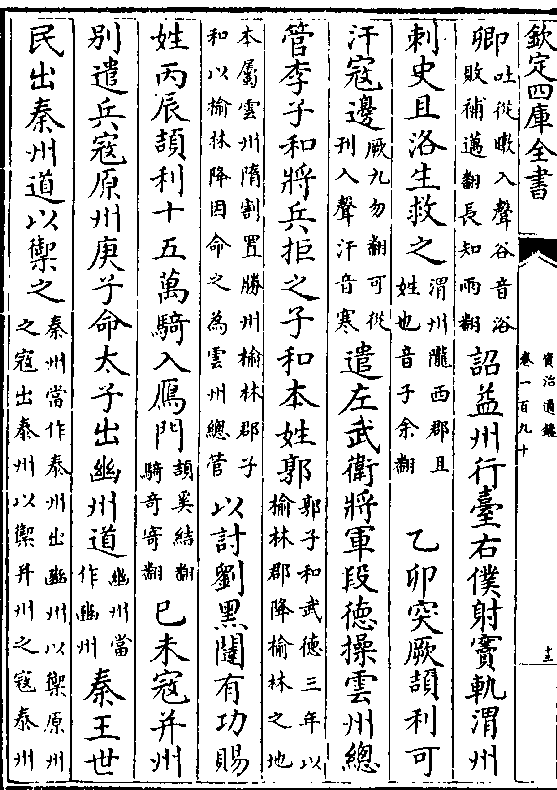 欽定四庫全書
資治通鑑
卷一百九十
卿吐從暾入聲谷音浴
敗補邁翻長知兩翻詔益州行臺右僕射竇軌渭州
刺史且洛生救之渭州隴西郡且
姓也音子余翻乙卯突厥頡利可
汗寇邊厥九勿翻可從
刊入聲汗音寒遣左武衛將軍段德操雲州總
管李子和將兵拒之子和本姓郭郭子和武德三年以
榆林郡降榆林之地
本屬雲州隋割置勝州榆林郡子
和以榆林降因命之為雲州總管以討劉黑闥有功賜
姓丙辰頡利十五萬騎入鴈門頡奚結翻
騎奇寄翻己未寇并州
別遣兵寇原州庚子命太子出幽州道幽州當
作豳州秦王世
民出秦州道以禦之秦州當作泰州出豳州以禦原州
之寇出泰州以禦并州之寇泰州